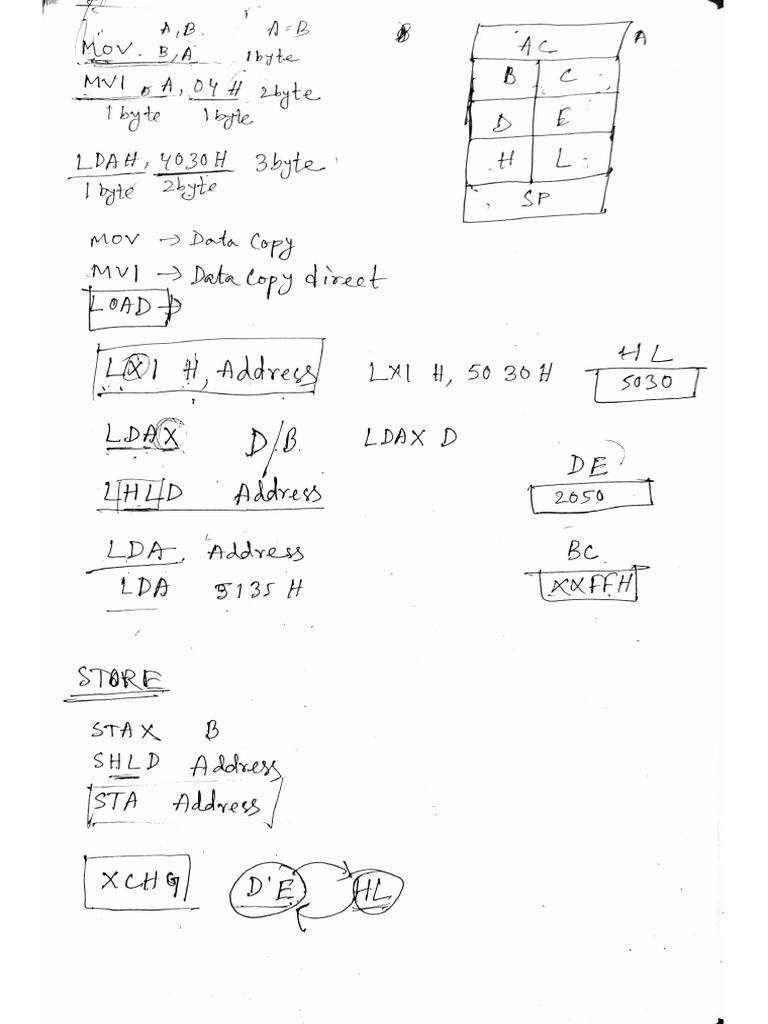 A, B. A=B
MOV. B, A 1 byte
MVI A, 04 H 2 byte
1 byte 1 byte
LDAH, 4030H 3 byte
1 byte 2 byte
B
AC A
B C
D E
H L
SP
MOV → Data Copy
MVI → Data Copy direct
LOAD →
LXI H, Address LXI H, 5030H
HL
5030
LDAX D/B. LDAX D
LHLD Address
DE
2050
LDA Address
LDA 5135 H
BC
XXFFH
STORE
STAX B
SHLD Address
STA Address
XCHG D'E HL